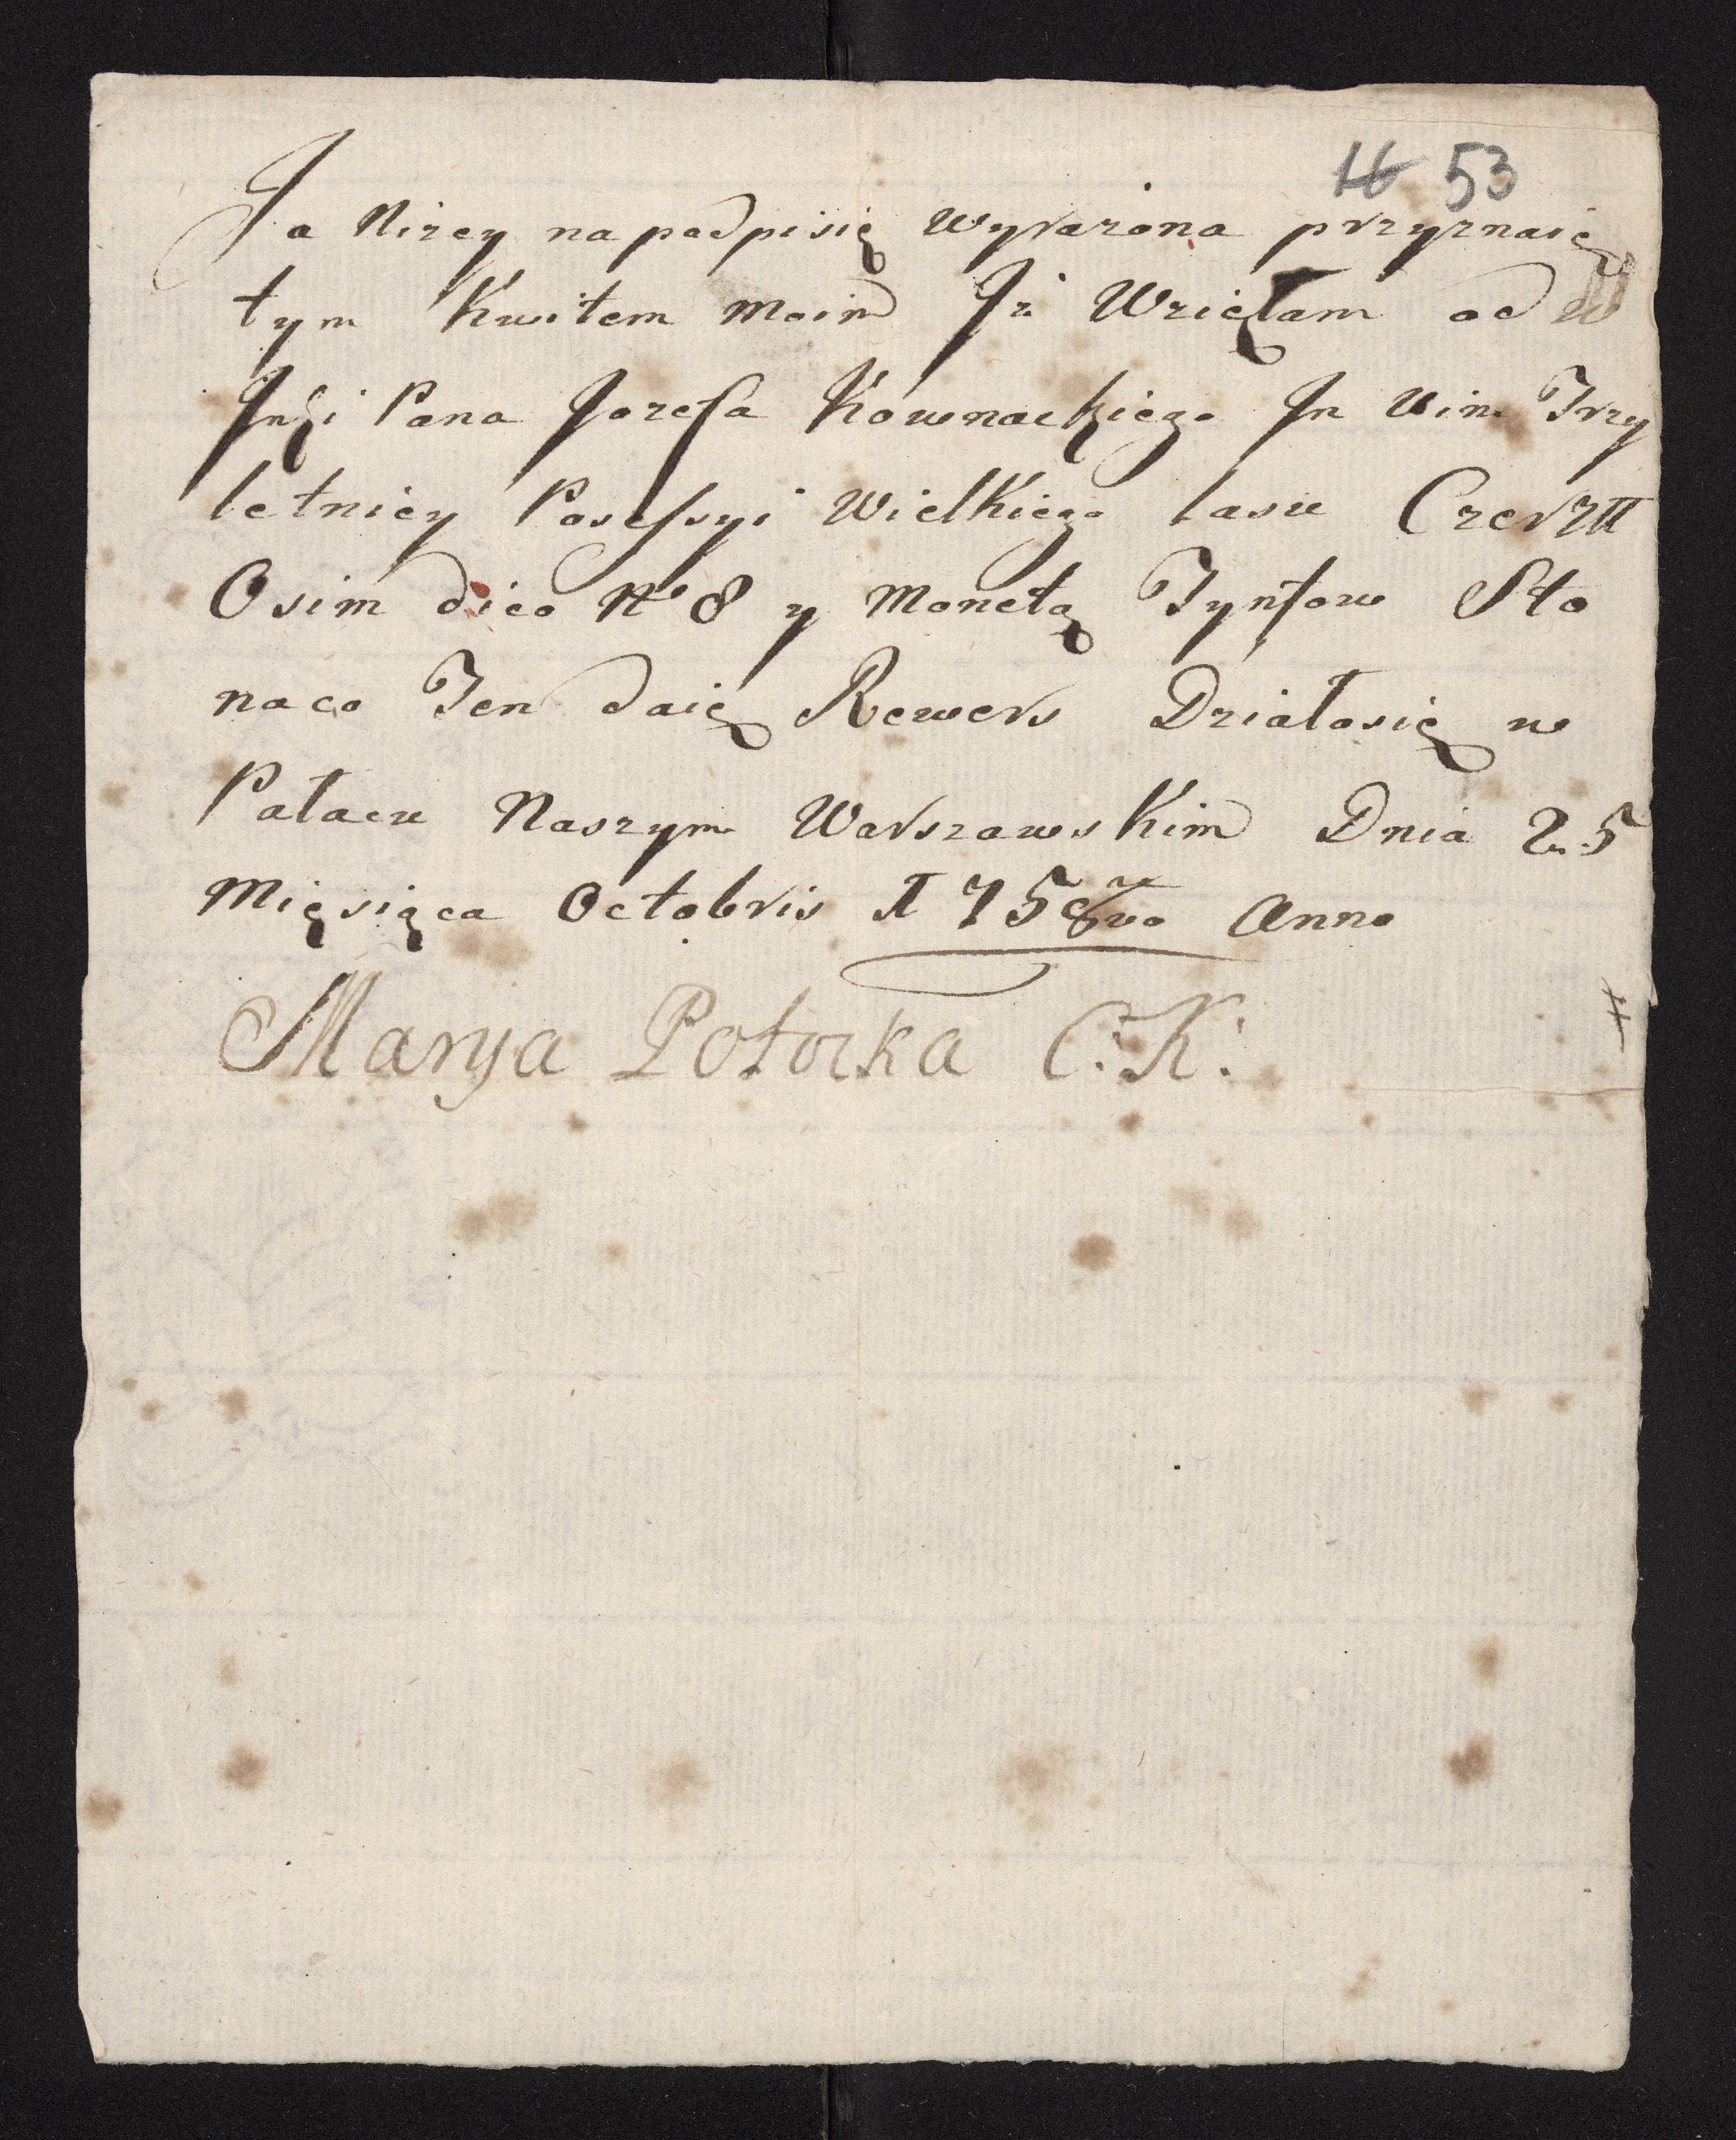 16 53
Ja Nizey na podpisię wyrazona przyznaię
tym Kwitem moim Iz Wzięłam od W
Jmći Pana Jozefa Kownackiego In Vim Trzy
letniey Posessyi Wielkiego lasu Czerzłł
Osim dico No 8 y Monetą Tynfow Sto
naco Ten daię Rewers Działosię w
Pałacu Naszym Warszawskim Dnia 25
Mięsiąca Octobris 175 Anno
Marya Potocka C: K: